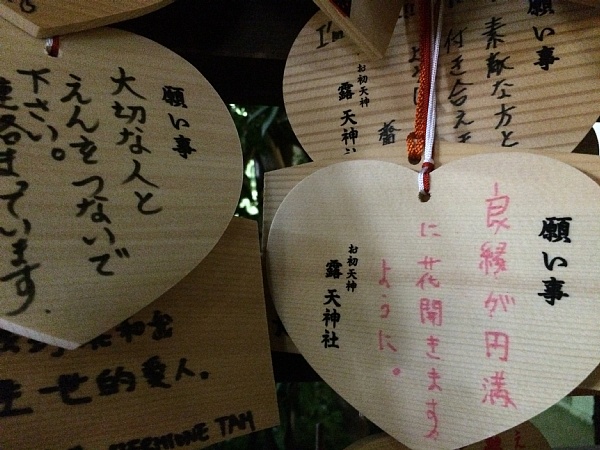 願い事
大切な人と
えんをつないで
下さい。
連絡まっています。
願い事
素敵な方と
付き合えま
I'm
お初天神
露天神社
願い事
良縁が円満
に花開きます
ように。
お初天神
露天神社
生世的愛人。
HERMIONE TAN